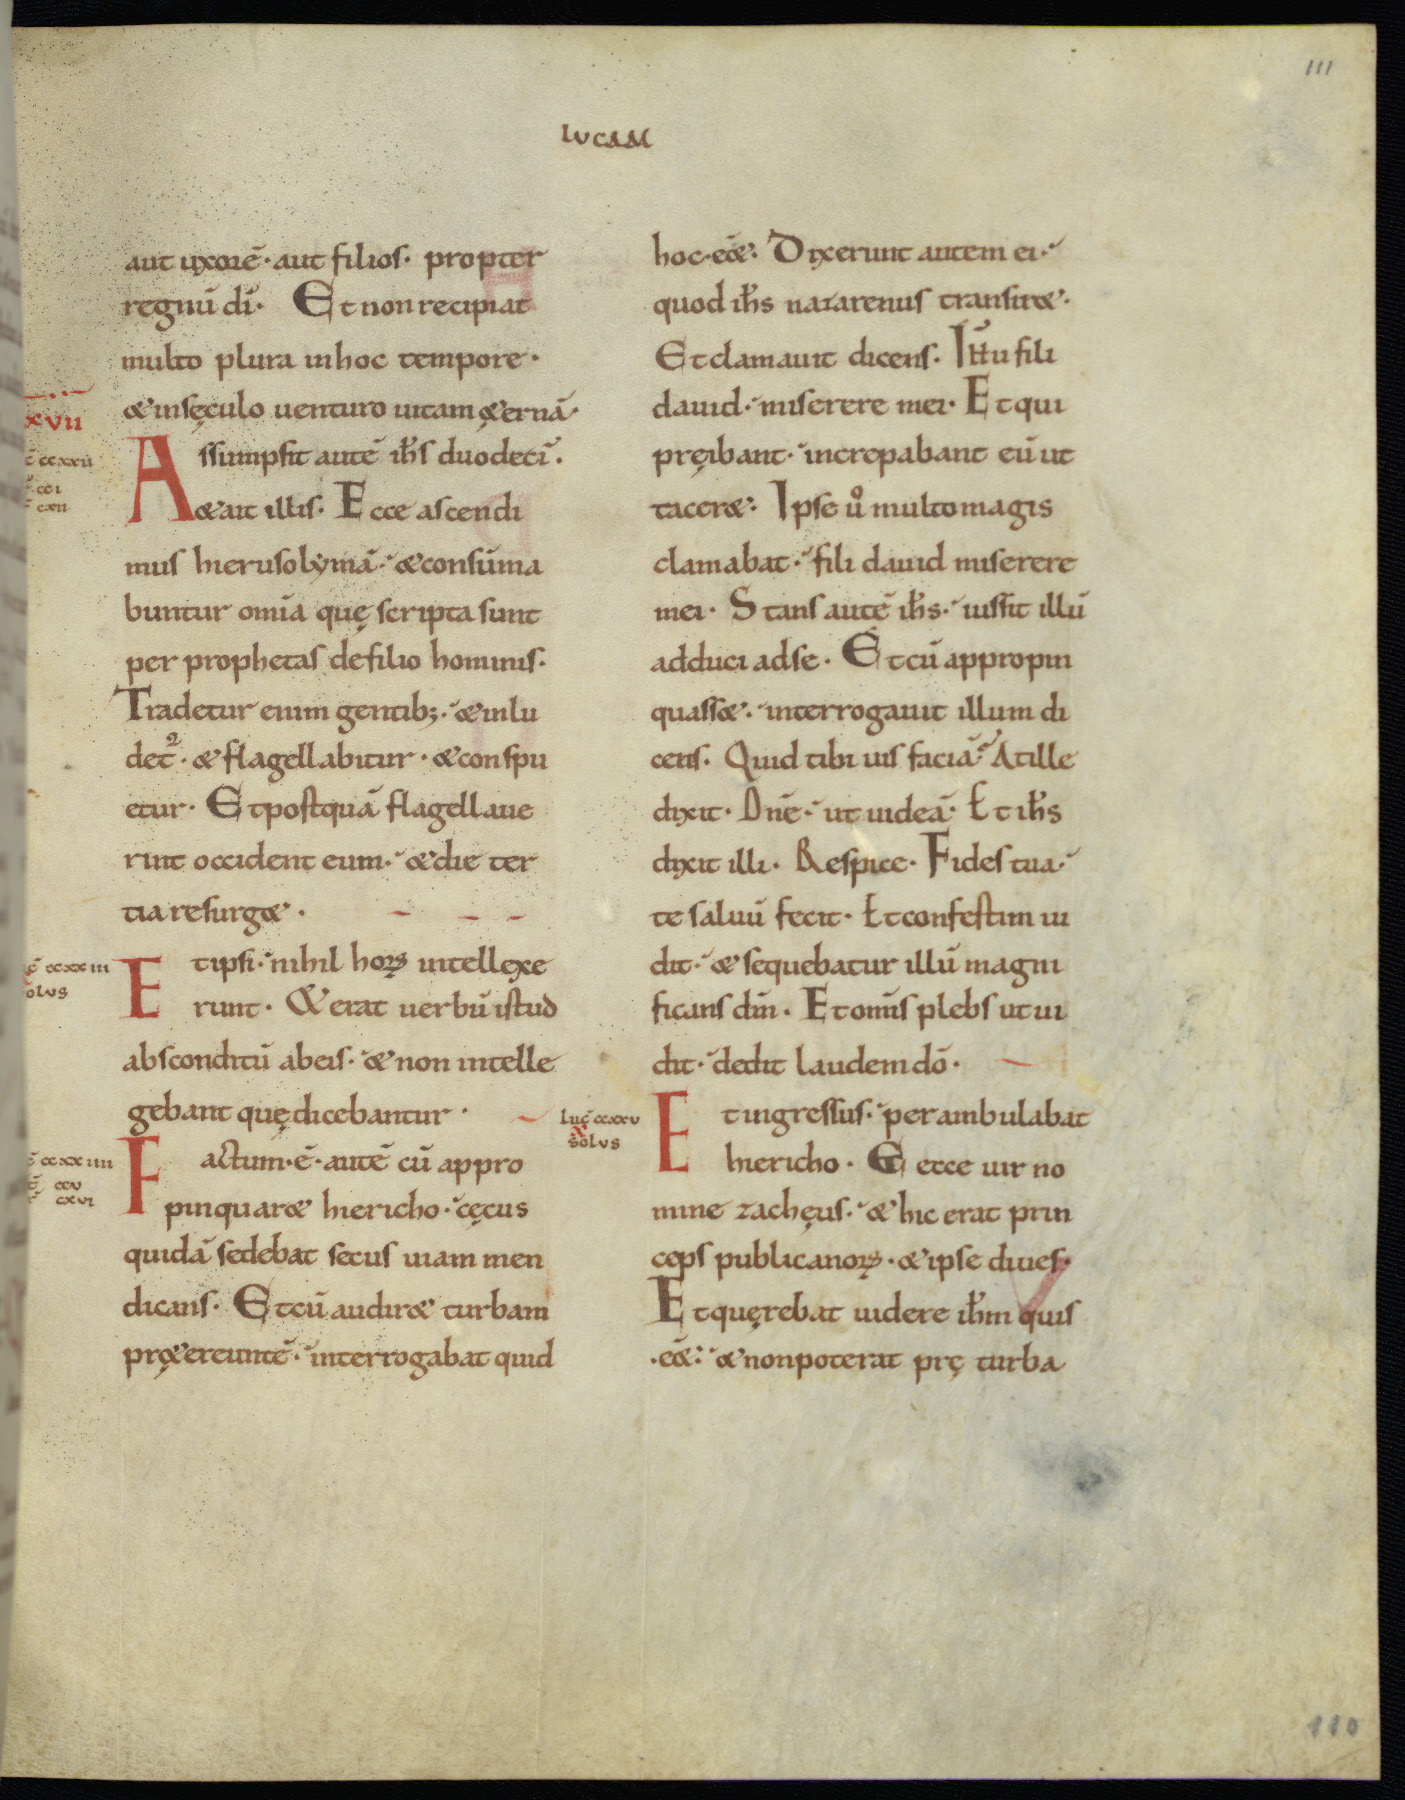 111
LUCAM
aut uxorē· aut filios· propter
regnū dī· Et non recipiat
multo plura in hoc tempore·
& in sęculo uenturo uitam ę&ernā·
xvii
Assumpsit autē ih̄s duodecī·
& ait illis· Ecce ascendi
mus hierusolẏmā· & consūma
buntur om̄ia quę scripta sunt
per prophetas de filio hominis·
Tradetur enim gentib;· & inlu
det᷑· & flagellabitur· & conspu
etur· Et postquā flagellaue
rint occident eum· & die ter
tia resurg&·
cc̄xxiii
solus
Et ipsi· nihil hoꝝ intellexe
runt· & erat uerbū istud
absconditū ab eis· & non intelle
gebant quę dicebantur·
ccxxiiii
ccv
cxvi
Factum·ē· autē cū appro
pinquar& hiericho· cęcus
quidā sedebat secus uiam men
dicans· Et cū audir& turbam
prę&ereuntē· interrogabat quid
hoc·e&· Dixerunt autem ei·
quod ih̄s nazarenus transir&·
Et clamauit dicens· Ih̄u fili
dauid· miserere mei· Et qui
pręibant· increpabant eū ut
tacer&· Ipse uͦ multo magis
clamabat· fili dauid miserere
mei· Stans autē ih̄s· iussit illū
adduci ad se· Et cū appropin
quass&· interrogauit illum di
cens· Quid tibi uis faciā? At ille
dixit· Dn̄e· ut uideā· Et ih̄s
dixit illi· Respice· Fides tua·
te saluū fecit· Et confestim ui
dit· & sequebatur illū magni
ficans dm̄· Et om̄is plebs ut ui
dit· dedit laudem dō·
Luc̄ ccxxv
solus
Et ingressus· perambulabat
hiericho· Et ecce uir no
mine zachęus· & hic erat prin
ceps publicanoꝝ· & ipse diues·
Et quęrebat uidere ih̄m quis
·e&· & non poterat prę turba
110